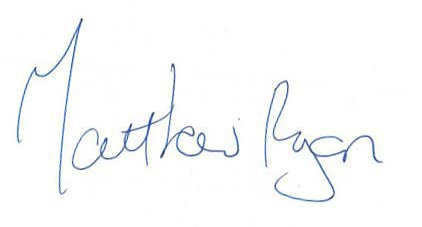 Matthew Ryan